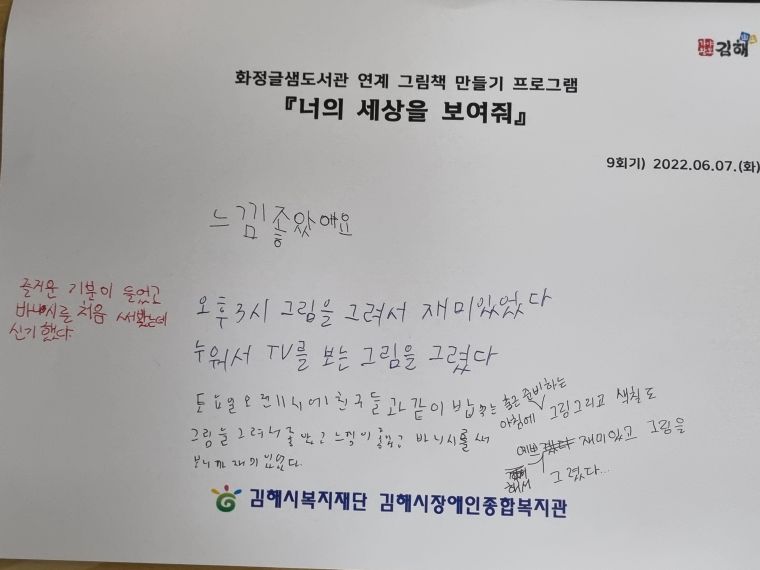 김해
화정글샘도서관 연계 그림책 만들기 프로그램
『너의 세상을 보여줘』
9회기) 2022.06.07.(화)
느낌좋았애요
즐거운 기분이 들었고
바니시를 처음 써봤는데
신기했다.
오후3시 그림을 그려서 재미있었다
누워서 TV를 보는 그림을 그렸다
토요일 오전11시에 친구들과 같이 밥 먹는
그림을 그려서 좋았고 느낌이 좋았고 바니시를 써
보니까 재미있었다.
출근 준비하는
아침에 그림그리고 색칠도
예쁘
해서
재미있고 그림을
그렸다...
김해시복지재단 김해시장애인종합복지관